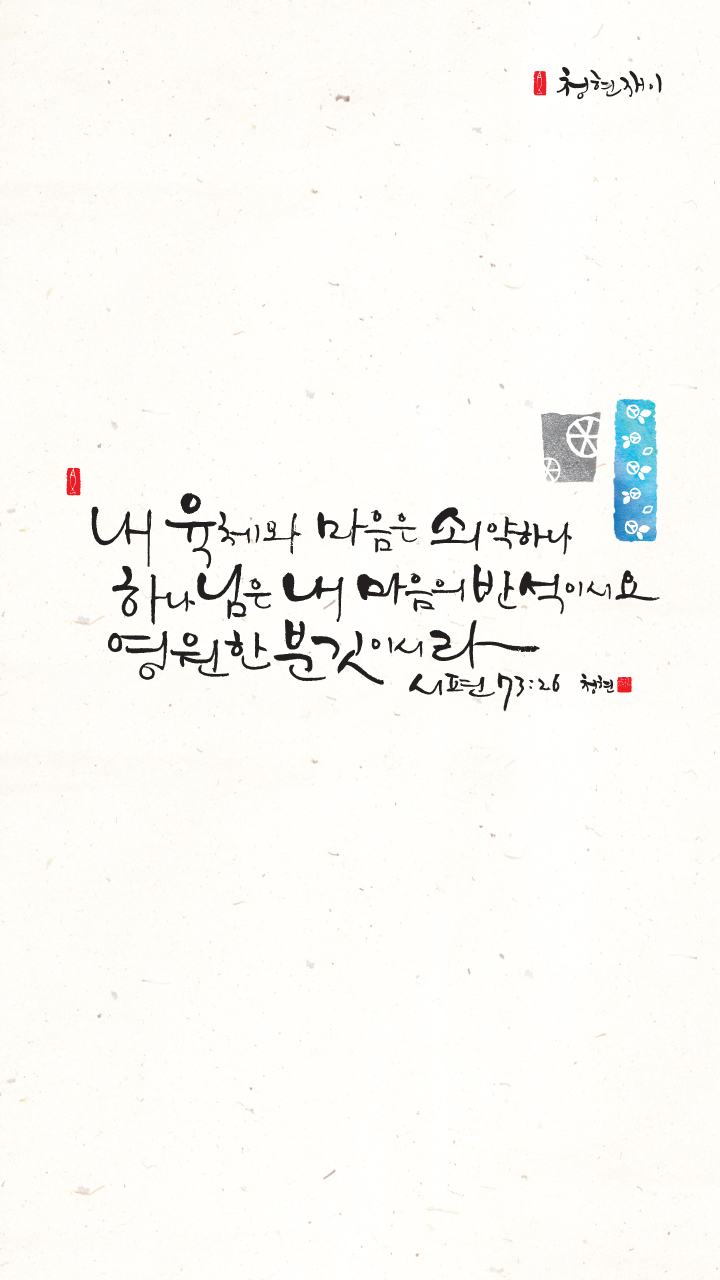 청현재이
내 육체와 마음은 쇠약하나
하나님은 내 마음의 반석이시요
영원한 분깃이시라
시편 73:26 청현